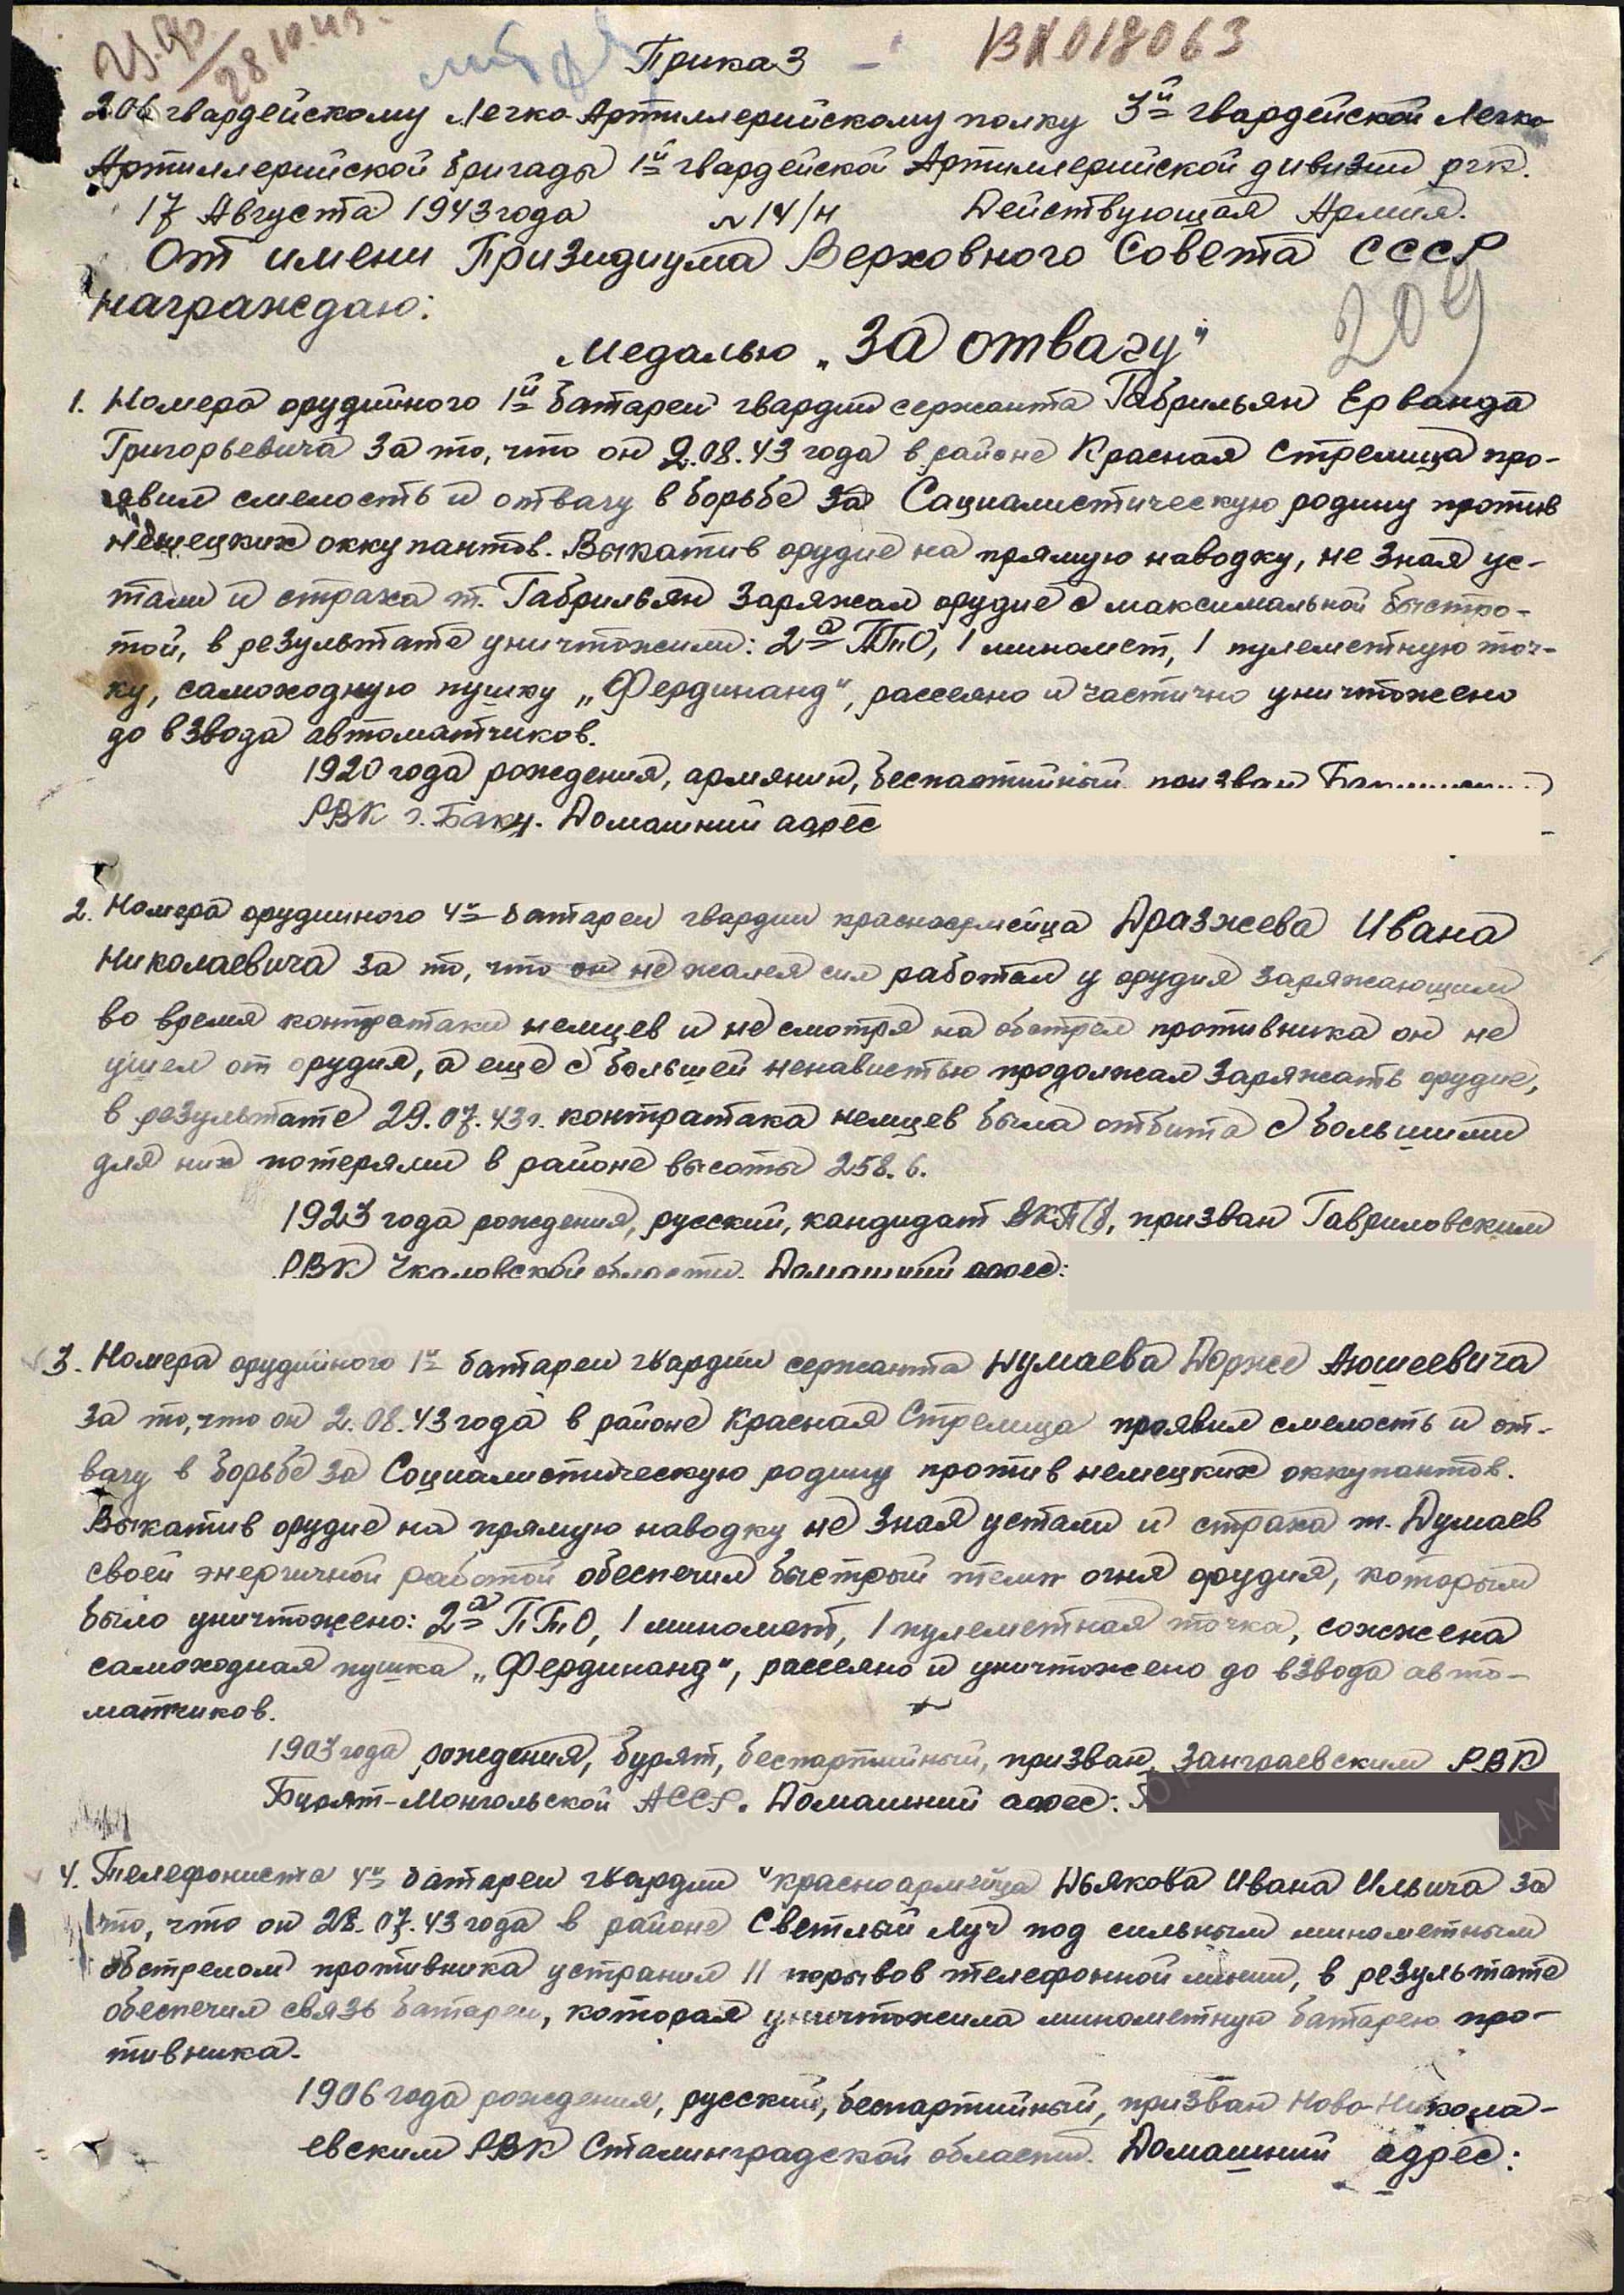 28.10.43.
ВХ018063
Приказ
206 гвардейскому Легко-Артиллерийскому полку 3й гвардейской Легко
Артиллерийской бригады 1й гвардейской Артиллерийской дивизии ргк.
17 Августа 1943 года №14/н Действующая Армия.
От имени Призидиума Верховного Совета СССР
награждаю:
209
Медалью „За отвагу"
1. Номера орудийного 1й батареи гвардии сержанта Габрильян Ерванда
Григорьевича за то, что он 2.08.43 года в районе Красная Стрелица про-
явил смелость и отвагу в борьбе за Социалистическую родину против
немецких оккупантов. Выкатив орудие на прямую наводку, не зная ус-
тали и страха т. Габрильян заряжал орудие с максимальной быстро-
той, в результате уничтожили: 2а ПТО, 1 миномет, 1 пулеметную точ-
ку, самоходную пушку „Фердинанд", рассеяно и частично уничтожено
до взвода автоматчиков.
1920 года рождения, армянин, беспартийный, призван
РВК г. Баку. Домашний адрес
2. Номера орудийного 4й батареи гвардии красноармейца Дразжева Ивана
Николаевича за то, что он не жалея сил работал у орудия заряжающим
во время контратаки немцев и не смотря на обстрел противника он не
ушел от орудия, а еще с большей ненавистью продолжал заряжать орудие,
в результате 29.07.43г. контратака немцев была отбита с большими
для них потерями в районе высоты 258.6.
1923 года рождения, русский, кандидат ВКП(б, призван Гавриловским
РВК Чкаловской области. Домашний адрес:
3. Номера орудийного 1й батареи гвардии сержанта Думаева Дорже Аюшеевича
за то, что он 2.08.43 года в районе Красная Стрелица проявил смелость и от-
вагу в борьбе за Социалистическую родину против немецких оккупантов.
Выкатив орудие на прямую наводку не зная устали и страха т. Думаев
своей энергичной работой обеспечил быстрый темп огня орудия, которым
было уничтожено: 2а ПТО, 1 миномет, 1 пулеметная точка, сожжена
самоходная пушка „Фердинанд", рассеяно и уничтожено до взвода авто-
матчиков.
1903 года рождения, бурят, беспартийный, призван, Занграевским РВК
Бурят-Монгольской АССР. Домашний адрес:
4. Телефониста 4й батареи гвардии красноармейца Дьякова Ивана Ильича за
то, что он 28.07.43 года в районе Светлый Луч под сильным минометным
обстрелом противника устранил 11 порывов телефонной линии, в результате
обеспечил связь батареи, которая уничтожила минометную батарею про-
тивника.
1906 года рождения, русский, беспартийный, призван Ново-Никола-
евским РВК Сталинградской области. Домашний адрес: